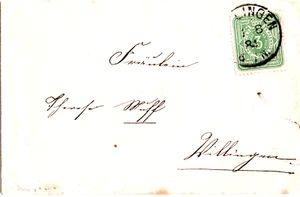 LINGEN
3
Fräulein
Therese Muff
Willingen.